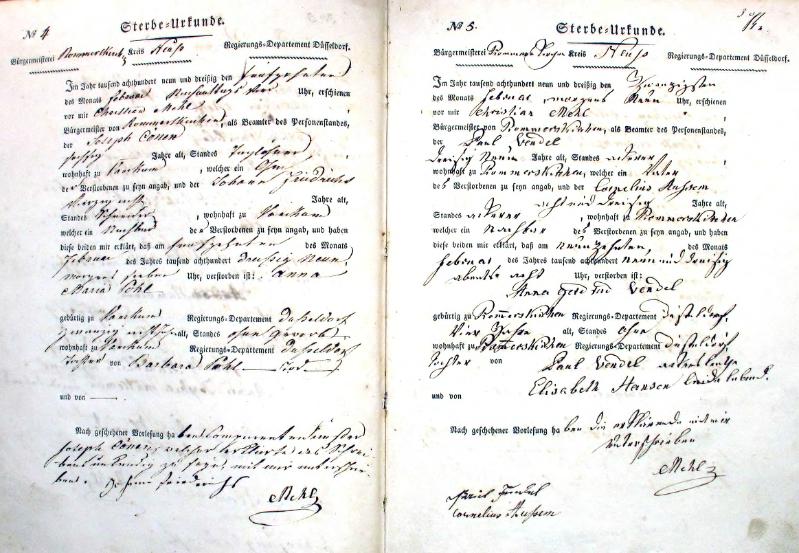 No 4
Sterbe=Urkunde.
Bürgermeisterei Rommerskirch Kreis Neuß Regierungs=Departement Düsseldorf.
Im Jahr tausend achthundert neun und dreißig den fünfzehnten
des Monats Februar Nachmittags vier Uhr, erschienen
vor mir Christian Mehl
Bürgermeister von Rommerskirchen, als Beamter des Personenstandes,
der Joseph Cönen
sechszig Jahre alt, Standes Taglöhner
wohnhaft zu , welcher ein Ohm
der Verstorbenen zu seyn angab, und der Johann Friedrichs
vierzig acht Jahre alt,
Standes Schneider, wohnhaft zu
welcher ein Nachbar der Verstorbenen zu seyn angab, und haben
diese beiden mir erklärt, daß am fünfzehnten des Monats
Februar des Jahres tausend achthundert dreißig neun
morgens sieben Uhr, verstorben ist: Anna
Maria Pöhl
gebürtig zu Regierungs=Departement Düsseldorf
zwanzig alt, Standes ohne Gewerbe
wohnhaft zu Regierungs=Departement Düsseldorf
Tochter von Barbara Pöhl
und von —
Nach geschehener Vorlesung ha ben Comparenten
Joseph Cönen welcher erklärte des Schrei
bens unkundig zu seyn mit mir unterschrie
ben. Friedrichs
Mehl
No 5.
Sterbe=Urkunde.
Bürgermeisterei Rommerskirchen Kreis Neuß Regierungs=Departement Düsseldorf.
Im Jahr tausend achthundert neun und dreißig den Zwanzigsten
des Monats Februar morgens neun Uhr, erschienen
vor mir Christian Mehl
Bürgermeister von Rommerskirchen, als Beamter des Personenstandes,
der Paul Vendel
dreißig neun Jahre alt, Standes Ackerer
wohnhaft zu Rommerskirchen, welcher ein Vater
des Verstorbenen zu seyn angab, und der Cornelius Aussem
acht und dreißig Jahre alt,
Standes Ackerer, wohnhaft zu Rommerskirchen
welcher ein Nachbar des Verstorbenen zu seyn angab, und haben
diese beiden mir erklärt, daß am neunzehnten, des Monats
Februar des Jahres tausend achthundert neun und dreißig
abends acht Uhr, verstorben ist:
Anna Gertrud Vendel
gebürtig zu Rommerskirchen Regierungs=Departement Düsseldorf,
vier Jahre alt, Standes ohne
wohnhaft zu Rommerskirchen Regierungs=Departement Düsseldorf,
Tochter von Paul Vendel Ackersleuthe
und von Elisabeth Hansen beide lebend.
Nach geschehener Vorlesung ha ben die mit mir
unterschrieben
Mehl
Cornelius Aussem